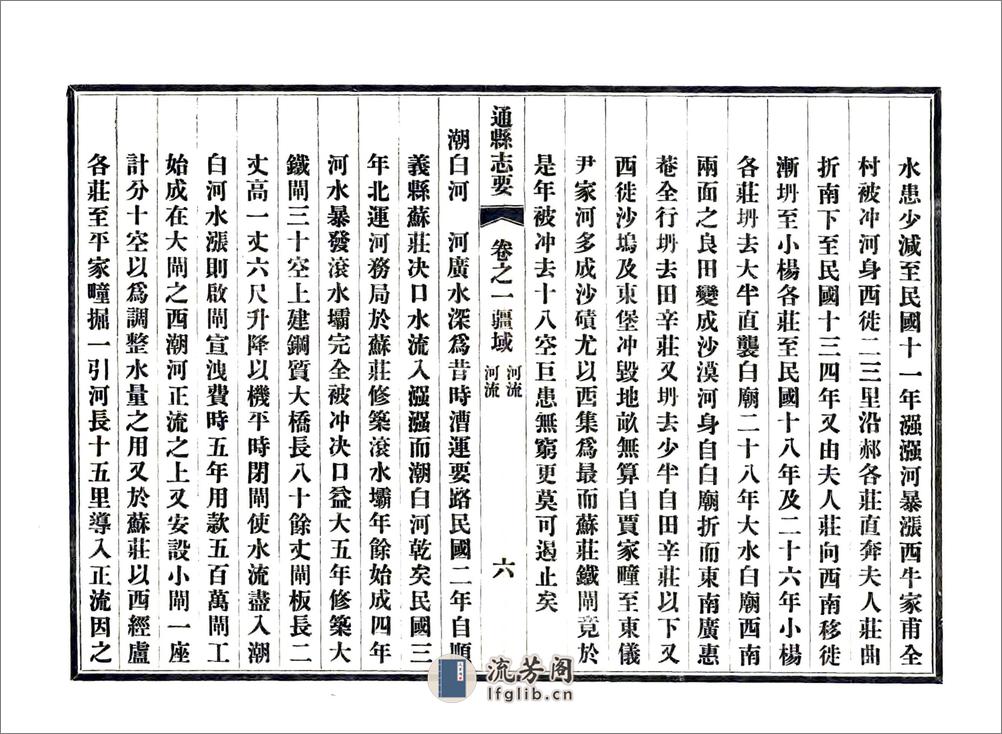 水患少減至民國十一年溵溵河暴漲西牛家甫全
村被冲河身西徙二三里沿郝各莊直奔夫人莊曲
折南下至民國十三四年又由夫人莊向西南移徙
漸坍至小楊各莊至民國十八年及二十六年小楊
各莊坍去大半直襲白廟二十八年大水白廟西南
兩面之良田變成沙漠河身自白廟折而東南廣惠
菴全行坍去田辛莊又坍去少半自田辛莊以下又
西徙沙塢及東堡冲毀地畝無算自賈家疃至東儀
尹家河多成沙磧尤以西集爲最而蘇莊鐵閘竟於
是年被冲去十八空巨患無窮更莫可遏止矣
通縣志要
卷之一疆域
河流
河流
六
潮白河 河廣水深爲昔時漕運要路民國二年自順
義縣蘇莊决口水流入溵溵而潮白河乾矣民國三
年北運河務局於蘇莊修築滾水壩年餘始成四年
河水暴發滾水壩完全被冲决口益大五年修築大
鐵閘三十空上建鋼質大橋長八十餘丈閘板長二
丈高一丈六尺升降以機平時閉閘使水流盡入潮
白河水漲則啟閘宣洩費時五年用款五百萬閘工
始成在大閘之西潮河正流之上又安設小閘一座
計分十空以爲調整水量之用又於蘇莊以西經盧
各莊至平家疃掘一引河長十五里導入正流因之
流芳阁
lfglib.cn